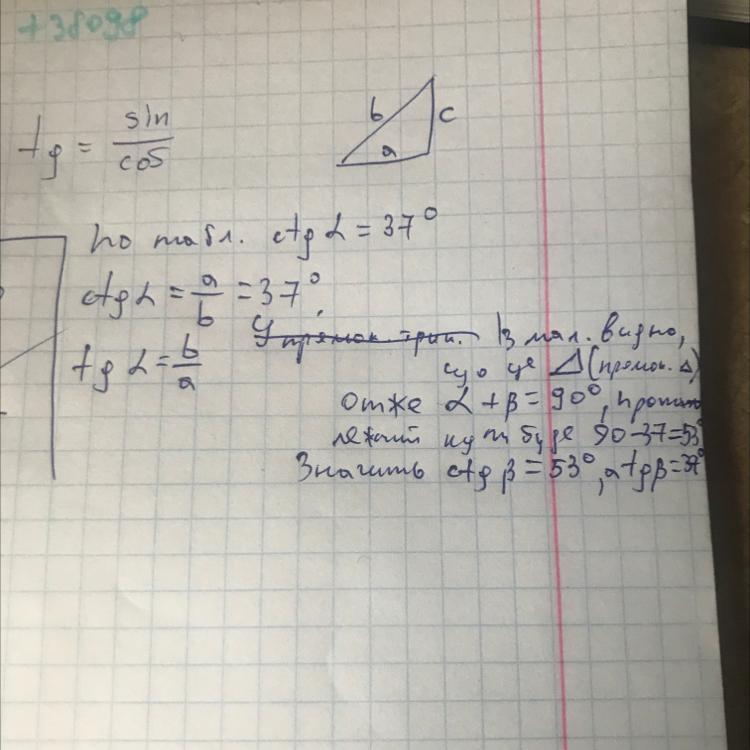 +38098
tg = sin/cos
b
c
a
по табл. ctg α = 37°
ctg α = a/b = 37°
tg α = b/a
У прямок. трик. З мал. видно,
що це ⊿ (прямок. Δ)
отже α + β = 90°, проти
лежний кут буде 90-37=53°
Значить ctg β = 53°, а tg β = 37°